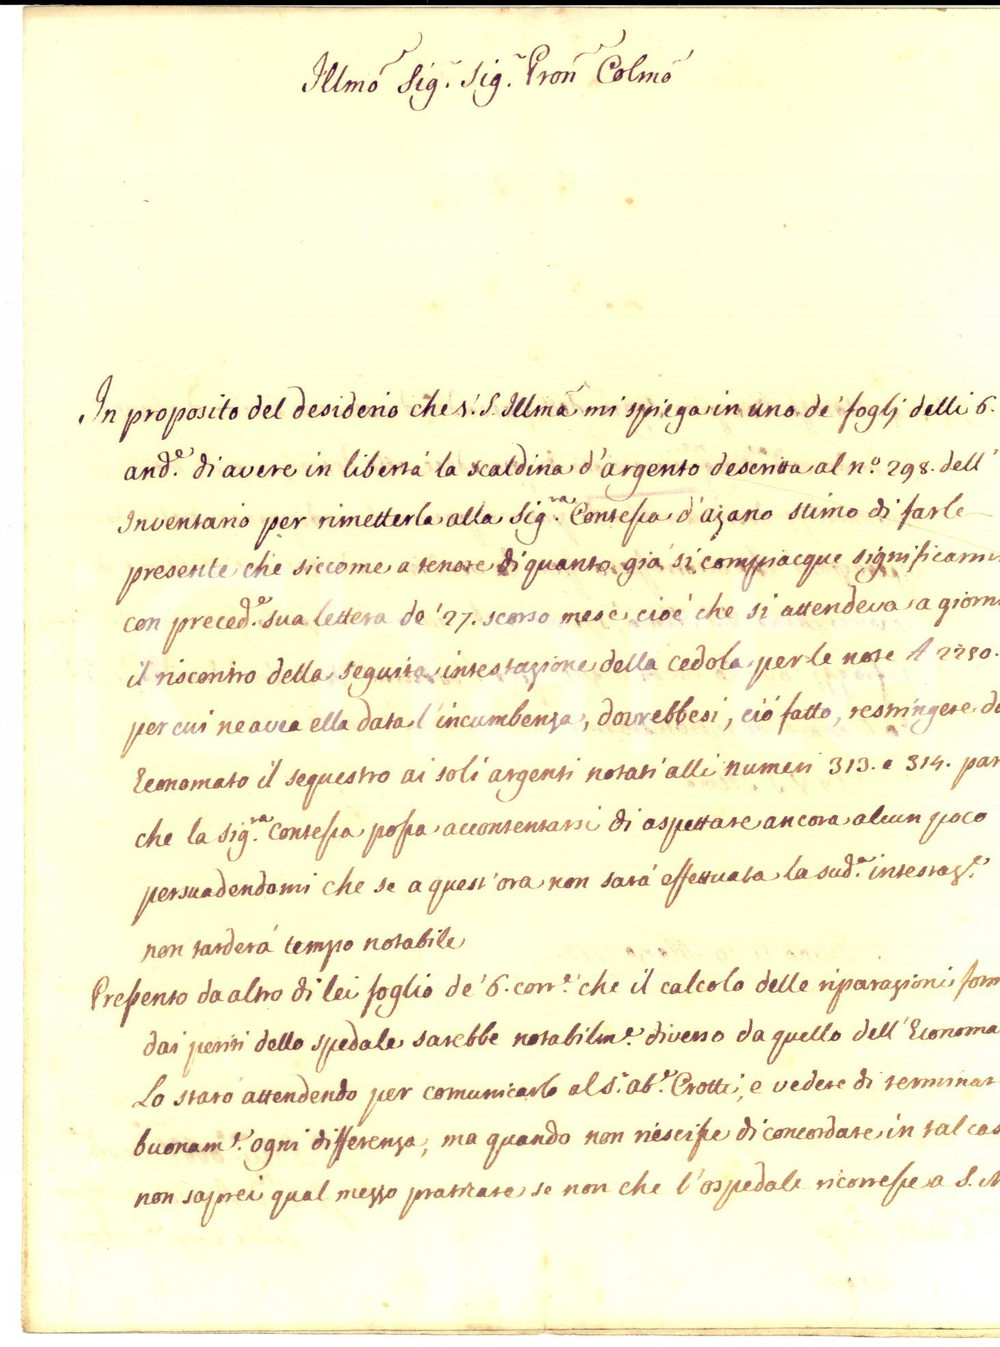 Illmo Sig.r Sig.r Pron Colmo
In proposito del desiderio che V. S. Illma mi spiega in uno de' foglj delli 6.
and.e di avere in libertà la scaldina d'argento descritta al n.o 298. dell'
Inventario per rimetterla alla Sig.ra Contessa d'Azano stimo di farle
presente che siccome a tenore di quanto già si compiacque significarmi
con preced.e sua lettera de' 27. scorso mese cioè che si attendeva a giorni
il riscontro della seguita intestazione della cedola per le note 2250.
per cui ne avea ella data l'incumbenza, dovrebbesi, ciò fatto, restringere da
Economato il sequestro ai soli argenti notati alli numeri 313. e 314. par
che la Sig.ra Contessa possa accontentarsi di aspettare ancora alcun poco
persuadendomi che se a quest'ora non sarà effettuata la sud.a intestaz.e
non tarderà tempo notabile
Pressento da altro di lei foglio de' 6. corr.e che il calcolo delle riparazioni form
dai periti dello spedale sarebbe notabilm.e diverso da quello dell'Economa
Lo starò attendendo per comunicarlo al S.r ab.e Crotti, e vedere di terminar
buonam.e ogni differenza, ma quando non riescisse di concordare in tal cas
non saprei qual mezzo praticare se non che l'ospedale ricorresse a S. M